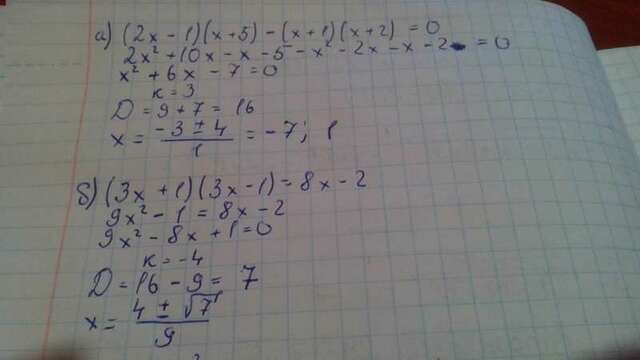 а) (2x - 1)(x+5) - (x+1)(x+2) = 0
2x² + 10x - x - 5 - x² - 2x - x - 2 = 0
x² + 6x - 7 = 0
к = 3
D = 9 + 7 = 16
x = (-3 ± 4)/1 = -7; 1
б) (3x + 1)(3x - 1) = 8x - 2
9x² - 1 = 8x - 2
9x² - 8x + 1 = 0
к = -4
D = 16 - 9 = 7
x = (4 ± √7)/9